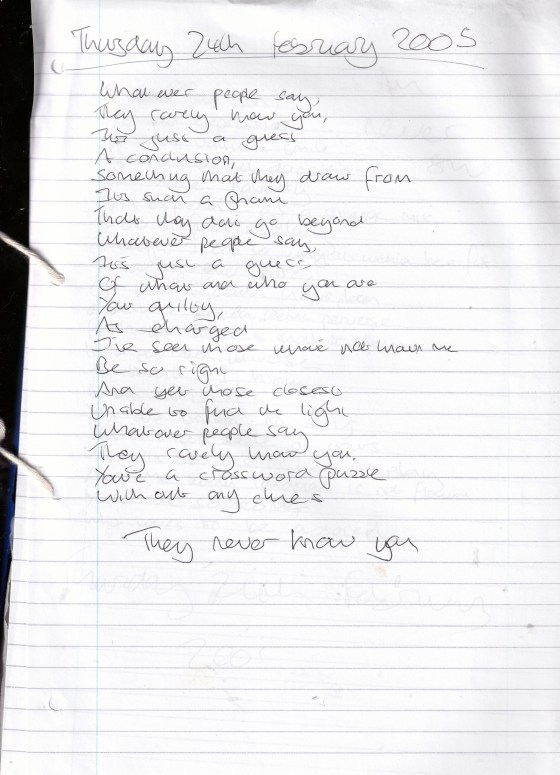 Thursday 24th February 2005
Whatever people say,
They rarely know you,
It's just a guess
A conclusion,
Something that they draw from
It's such a shame
That's they don't go beyond
Whatever people say,
It's just a guess
Of what and who you are
Your guilty,
As charged
I've seen those who've not known me
Be so right
And yet those closest
Unable to find the light
Whatever people say
They rarely know you.
You're a crossword puzzle
With out any clues
They never know you